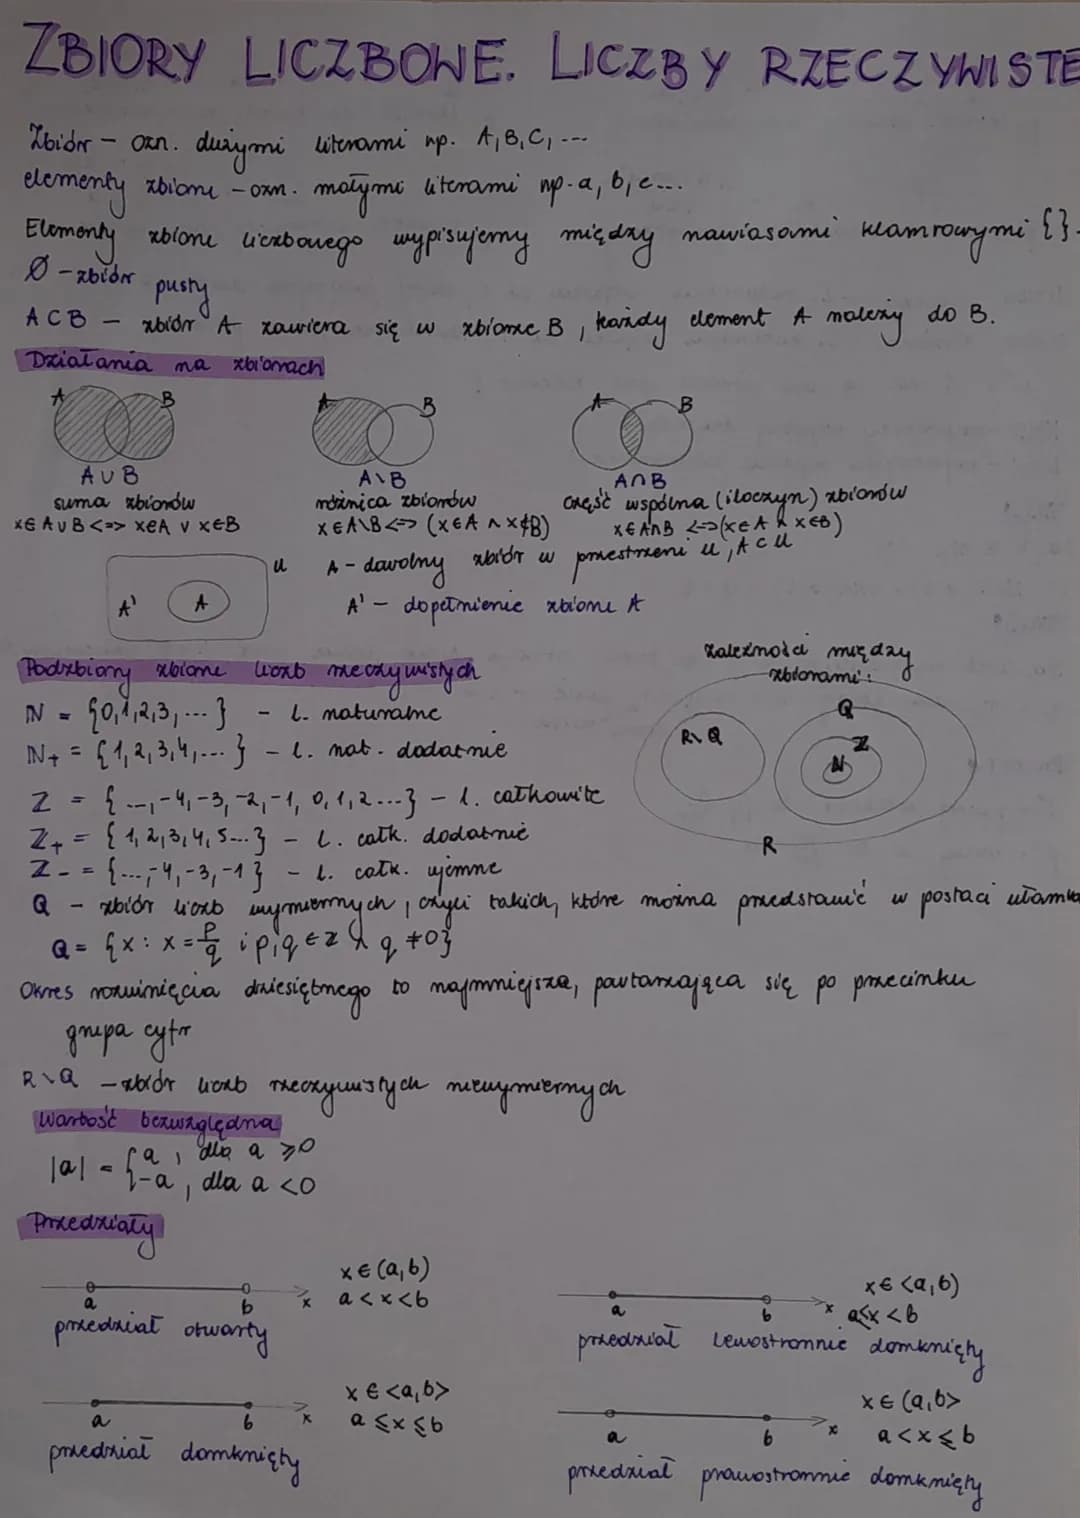 ZBIORY LICZBOWE. LICZBY RZECZYWISTE
Zbiór - ozn. dużymi literami np. A, B, C, ...
elementy zbioru - ozn. małymi literami np. a, b, c...
Elementy zbioru liczbowego wypisujemy między nawiasami klamrowymi { }.
Ø - zbiór pusty
A ⊂ B - zbiór A zawiera się w zbiorze B, każdy element A należy do B.
Działania na zbiorach
A B A B A B
A ∪ B A \ B A ∩ B
suma zbiorów różnica zbiorów część wspólna (iloczyn) zbiorów
x ∈ A ∪ B <=> x ∈ A ∨ x ∈ B x ∈ A \ B <=> (x ∈ A ∧ x ∉ B) x ∈ A ∩ B <=> (x ∈ A ∧ x ∈ B)
U A - dowolny zbiór w przestrzeni U, A ⊂ U
A' A A' - dopełnienie zbioru A
Podzbiory zbioru liczb rzeczywistych
zależności między
zbiorami:
N = {0,1,2,3,...} - l. naturalne
N+ = {1,2,3,4,...} - l. nat. dodatnie
Z = {...,-4,-3,-2,-1,0,1,2...} - l. całkowite
Z+ = {1,2,3,4,5...} - l. całk. dodatnie
Z- = {...,-4,-3,-1} - l. całk. ujemne
R \ Q
Q
Z
N
R
Q - zbiór liczb wymiernych, czyli takich, które można przedstawić w postaci ułamka
Q = {x : x = p/q i p,q ∈ Z ∧ q ≠ 0}
Okres rozwinięcia dziesiętnego to najmniejsza, powtarzająca się po przecinku
grupa cyfr
R \ Q - zbiór liczb rzeczywistych niewymiernych
Wartość bezwzględna
|a| = { a, dla a ≥ 0
-a, dla a < 0
Przedziały
x ∈ (a,b) x ∈ <a,b)
a b x a < x < b a b x a ≤ x < b
przedział otwarty przedział lewostronnie domknięty
x ∈ <a,b> x ∈ (a,b>
a b x a ≤ x ≤ b a b x a < x ≤ b
przedział domknięty przedział prawostronnie domknięty